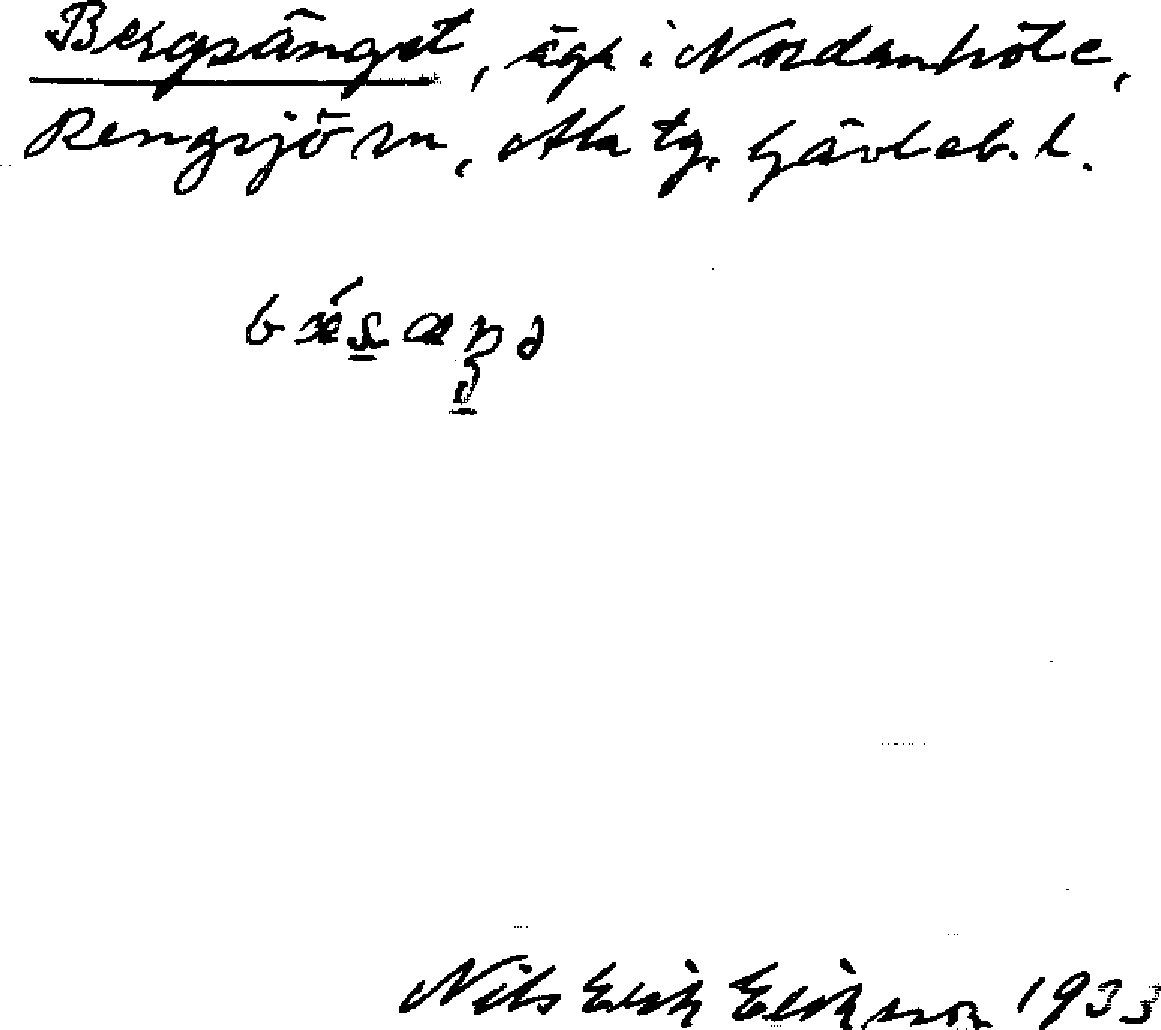 Bergsänget, ägh i Nordanhöle,
Rengsjö sn, Ala tg. Gävleb. l.
Nils Erik Eriksson 1933